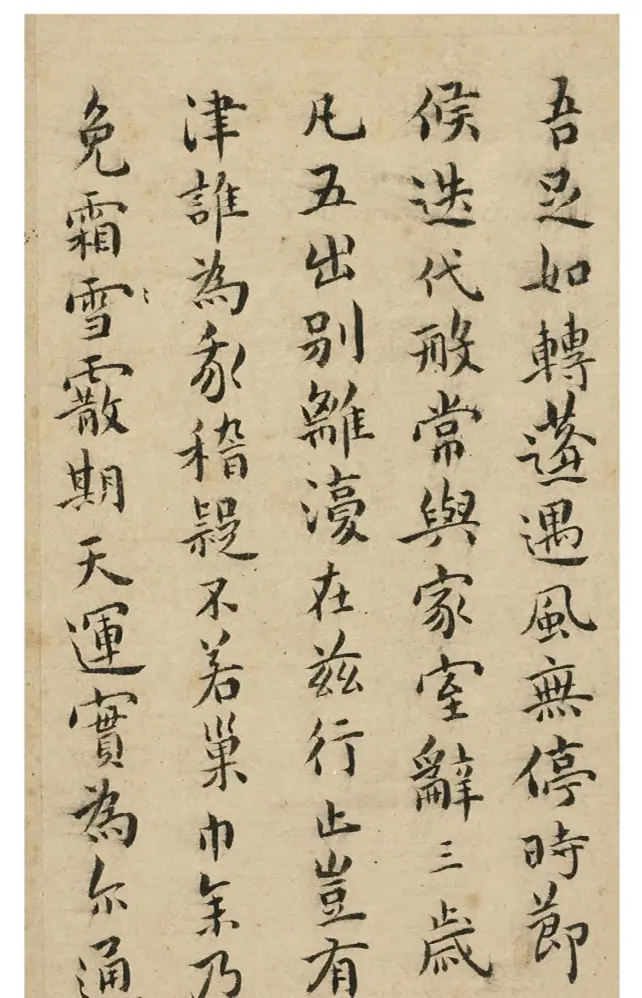 吾足如轉蓬遇風無停時節
候迭代般常與家室辭三歲
凡五出别離在兹行止豈有
津誰為我稽疑不若巢巾乃
免霜雪霰期天運實為尔通